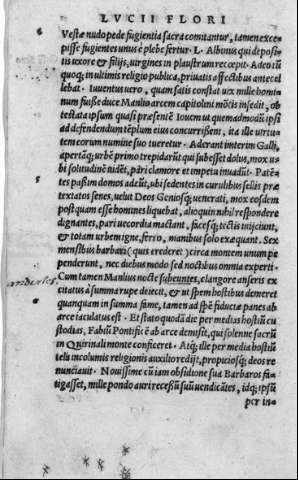 LVCII FLORI
Vestæ nudo pede fugientia sacra comitantur, tamen exce-
pisse fugientes unus è plebe fertur · L. Albinus qui deposi-
tis uxore & filijs, uirgines in plaustrum recepit · Adeo tū
quoq; in ultimis religio publica, priuatis affectibus antecel
lebat · Iuuentus uero, quam satis constat uix mille homi-
num fuisse duce Manlio arcem capitolini mōtis insedit, ob
testata ipsum quasi præsentē Iouem ut quemadmodū ipsi
ad defendendum tēplum eius concurrissent, ita ille uirtu-
tem eorum numine suo tueretur · Aderant interim Galli,
apertāq; urbē primo trepidi adeunt, ne quis subesset dolus, mox u-
bi solitudinē uidēt, pari clamore et impetu inuadūt · Patē-
tes passim domos adeūt, ubi sedentes in curulibus sellis præ
textatos senes, uelut Deos Geniosq; uenerati, mox eosdem
postquam esse homines liquebat, alioquin nihil respondere
dignantes, pari uecordia mactant, facesq; tectis inijciunt,
& totam urbem igne, ferro, manibus solo exæquant · Sex
mensibus barbari (quis crederet) circa montem unum pe
penderunt, nec diebus modo sed noctibus omnia experti ·
Cum tamen Manlius nocte subeuntes, clangore anseris ex
citatus à summa rupe deiecit, & ut spem hostibus demeret
quanquam in summa fame, tamen ad spēm fiduciæ panes ab
arce iaculatus est · Et stato quodā die per medias hostiū cu
stodias, Fabiū Pontificē ab arce demisit, qui solenne sacrū
in Quirinali monte conficeret · Atq; ille per media hostiū
tela incolumis religionis auxilio redijt, propiciosq; deos re
nunciauit · Nouissime cū iam obsidione sua Barbaros fa-
tigasset, mille pondo auri recessū suū uendicātes, idq; ipsū
per in-